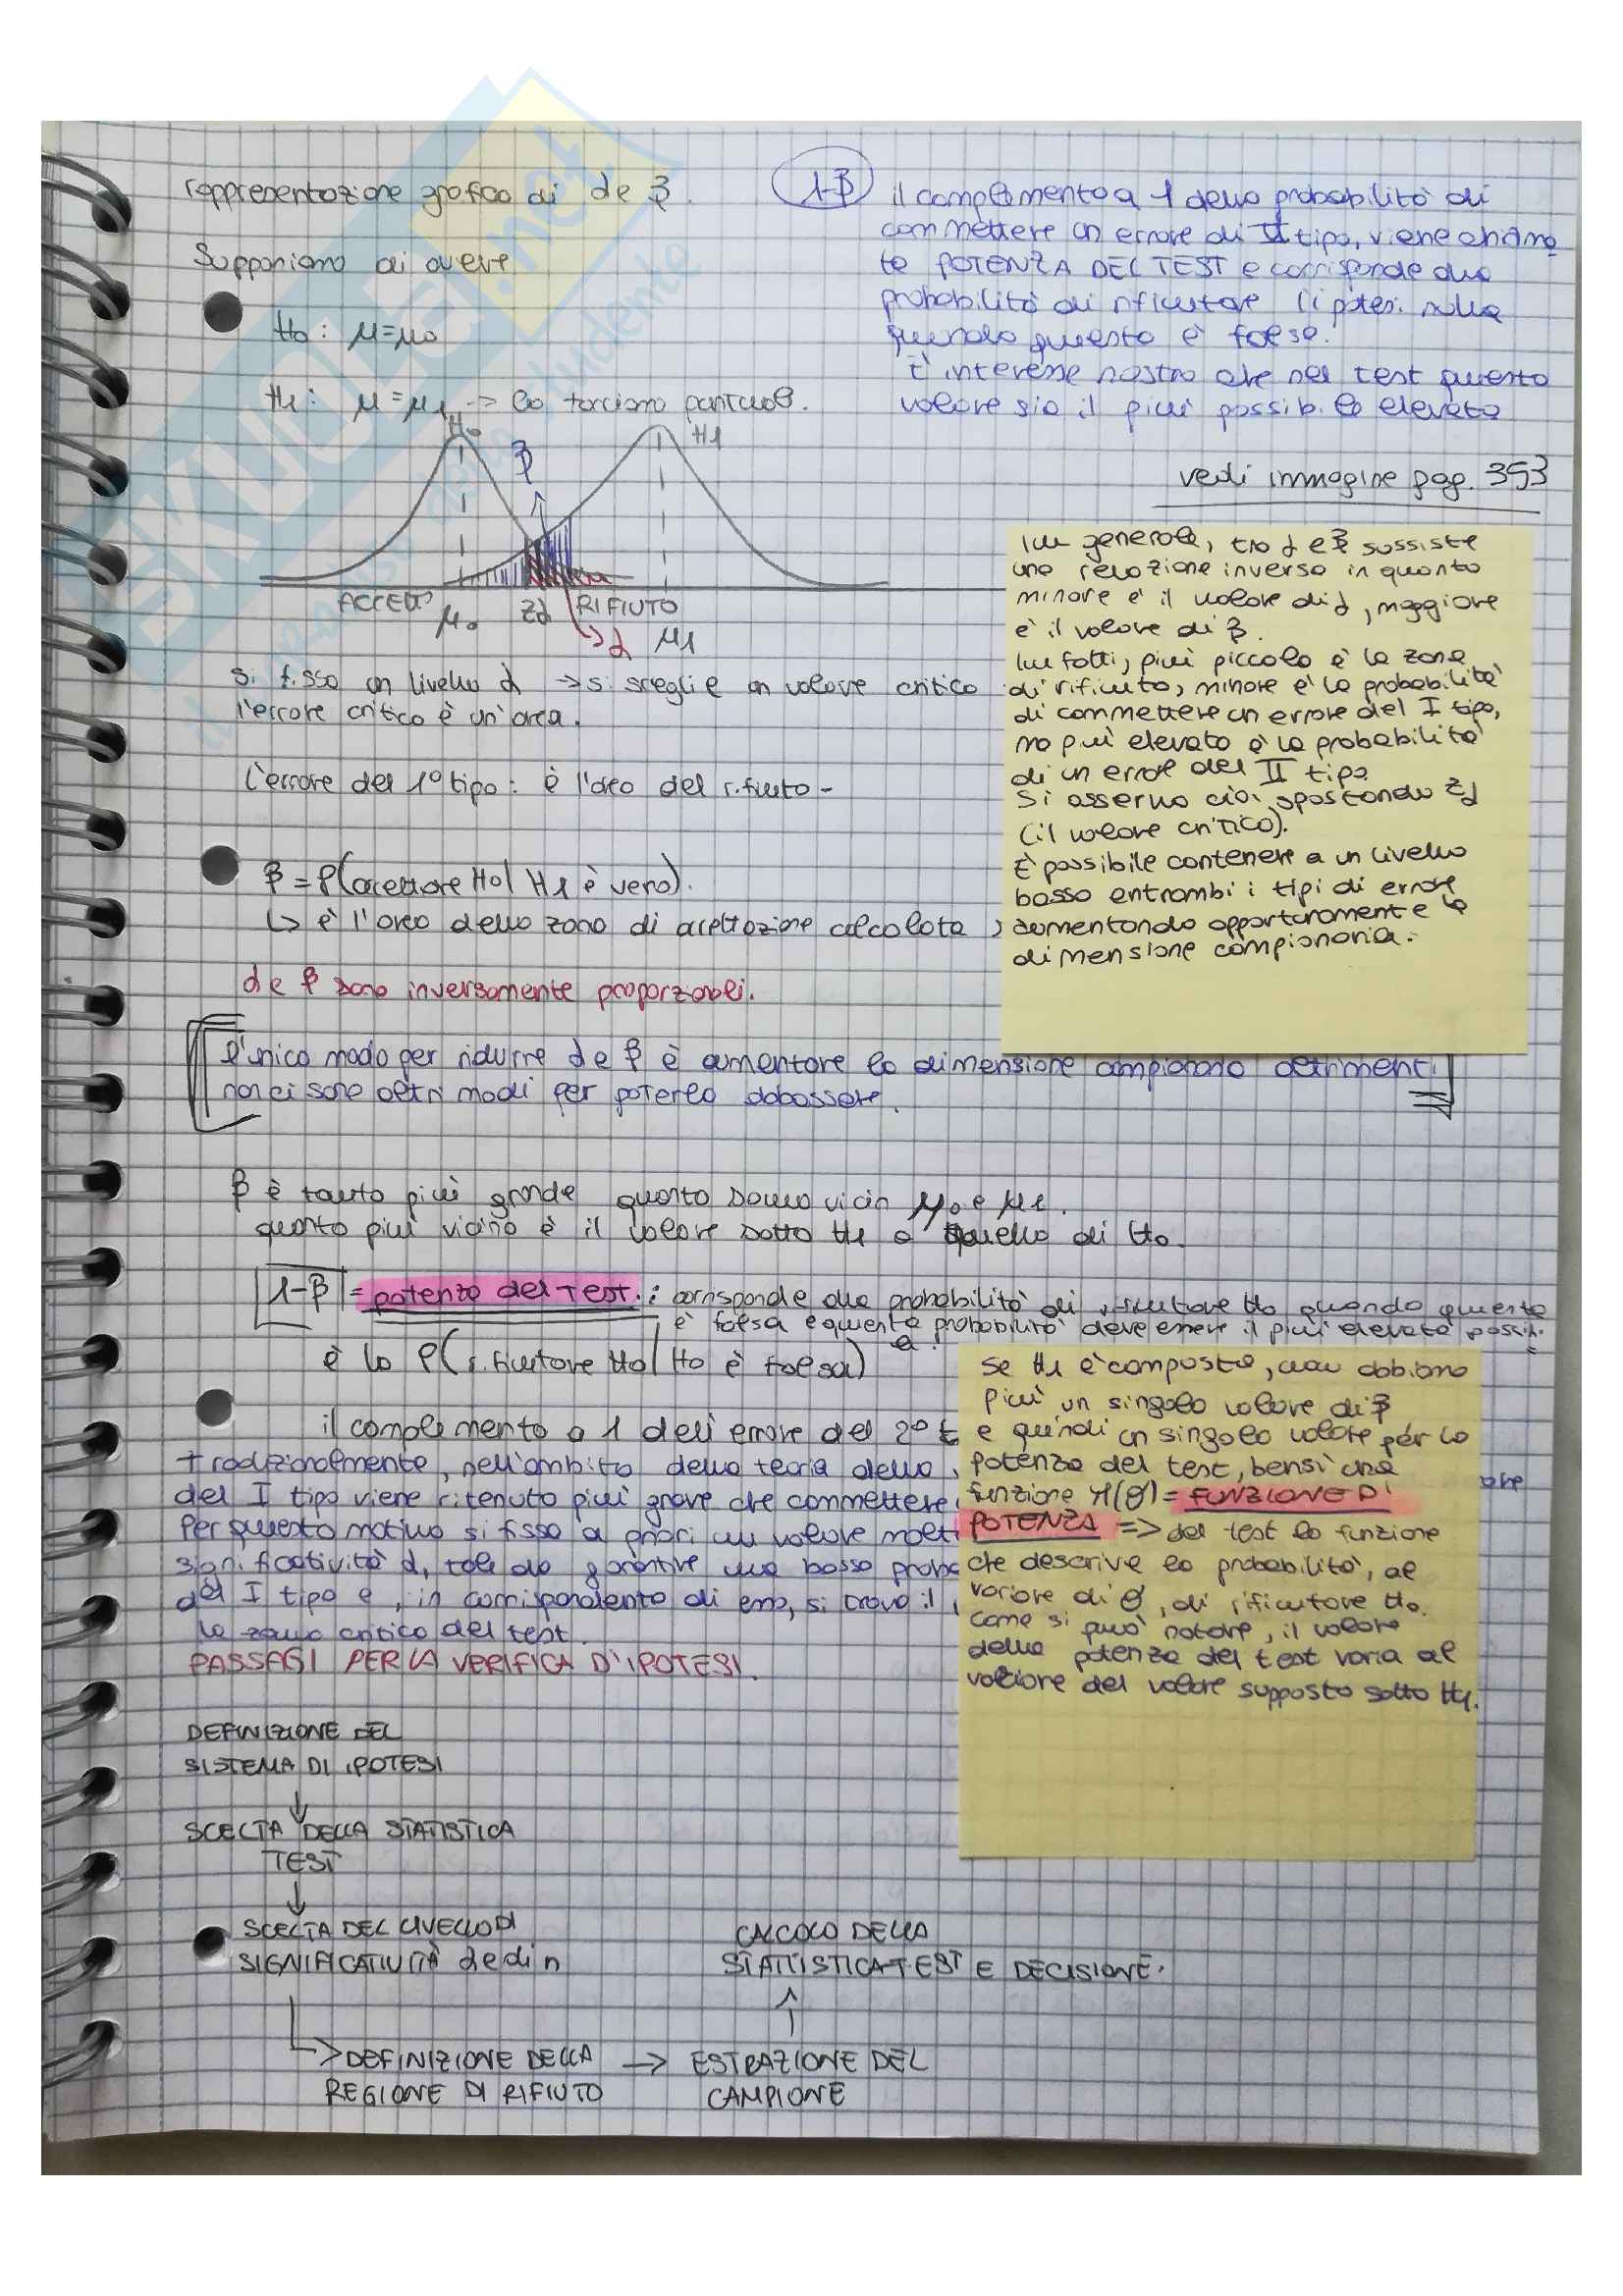 rappresentazione grafica di α e β.
Supponiamo di avere
H0: μ=μ0
H1: μ=μ1 -> lo facciamo puntuale.
1-β il complemento a 1 della probabilità di
commettere un errore di II tipo, viene chiama
ta POTENZA DEL TEST e corrisponde alla
probabilità di rifiutare l'ipotesi nulla
quando questa è falsa.
È interesse nostro che nel test questo
valore sia il più possibile elevato
vedi immagine pag. 353
H0
β
H1
ACCETT° zα RIFIUTO
μ0 α μ1
si fissa un livello α -> si sceglie un valore critico
l'errore critico è un'area.
L'errore del 1° tipo: è l'area del rifiuto-
β = P(accettare H0| H1 è vera).
↳ è l'area della zona di accettazione calcolata
α e β sono inversamente proporzionali.
In generale, tra α e β sussiste
una relazione inversa in quanto
minore è il valore di α, maggiore
è il valore di β.
Infatti, più piccola è la zona
di rifiuto, minore è la probabilità
di commettere un errore del I tipo,
ma più elevata è la probabilità
di un errore del II tipo
Si osserva ciò, spostando zα
(il valore critico).
È possibile contenere a un livello
basso entrambi i tipi di errore
aumentando opportunamente la
dimensione campionaria.
l'unico modo per ridurre α e β è aumentare la dimensione campionaria altrimenti
non ci sono altri modi per poterla abbassare.
β è tanto più grande quanto sono vicin μ0 e μ1.
quanto più vicino è il valore sotto H1 a quello di H0.
1-β = potenza del test.: corrisponde alla probabilità di rifiutare H0 quando questa
è falsa e questa probabilità deve essere il più elevata possib.
è la P(rifiutare H0| H0 è falsa)
il complemento a 1 dell'errore del 2° t
tradizionalmente, nell'ambito della teoria della
del I tipo viene ritenuto più grave che commettere
Per questo motivo si fissa a priori un valore molt
significatività α, tale da garantire una bassa proba
del I tipo e, in corrispondenza di esso, si trova il
la zona critica del test.
Se H1 è composta, non abbiamo
più un singolo valore di β
e quindi un singolo valore per la
potenza del test, bensì una
funzione π(θ) = FUNZIONE DI
POTENZA => del test la funzione
che descrive la probabilità, al
variare di θ, di rifiutare H0.
Come si può notare, il valore
della potenza del test varia al
variare del valore supposto sotto H1.
PASSAGI PER LA VERIFICA D'IPOTESI.
DEFINIZIONE DEL
SISTEMA DI IPOTESI
↓
SCELTA DELLA STATISTICA
TEST
↓
SCELTA DEL LIVELLO DI
SIGNIFICATIVITÀ α e di n
-> DEFINIZIONE DELLA
REGIONE DI RIFIUTO
-> ESTRAZIONE DEL
CAMPIONE
↑
CALCOLO DELLA
STATISTICA-TEST E DECISIONE.
SKUOLA.net